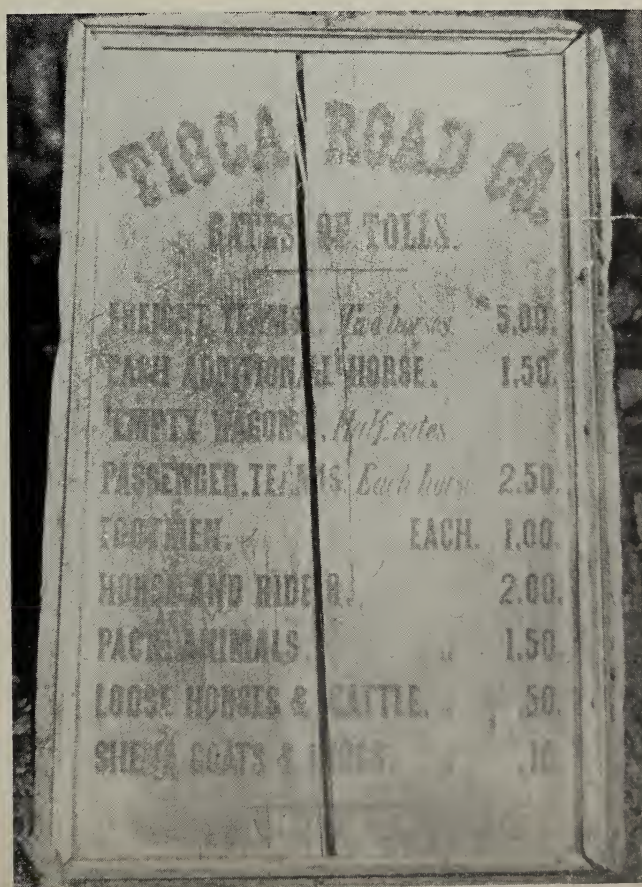 TIOGA ROAD CO.
RATES OF TOLLS.
FREIGHT TEAMS. Two horses. 5.00.
EACH ADDITIONAL HORSE. 1.50.
EMPTY WAGONS. Half rates.
PASSENGER TEAMS. Each horse. 2.50.
FOOTMEN. EACH. 1.00.
HORSE AND RIDER. 2.00.
PACK ANIMALS. 1.50.
LOOSE HORSES & CATTLE. .50.
SHEEP, GOATS & HOGS. .10.